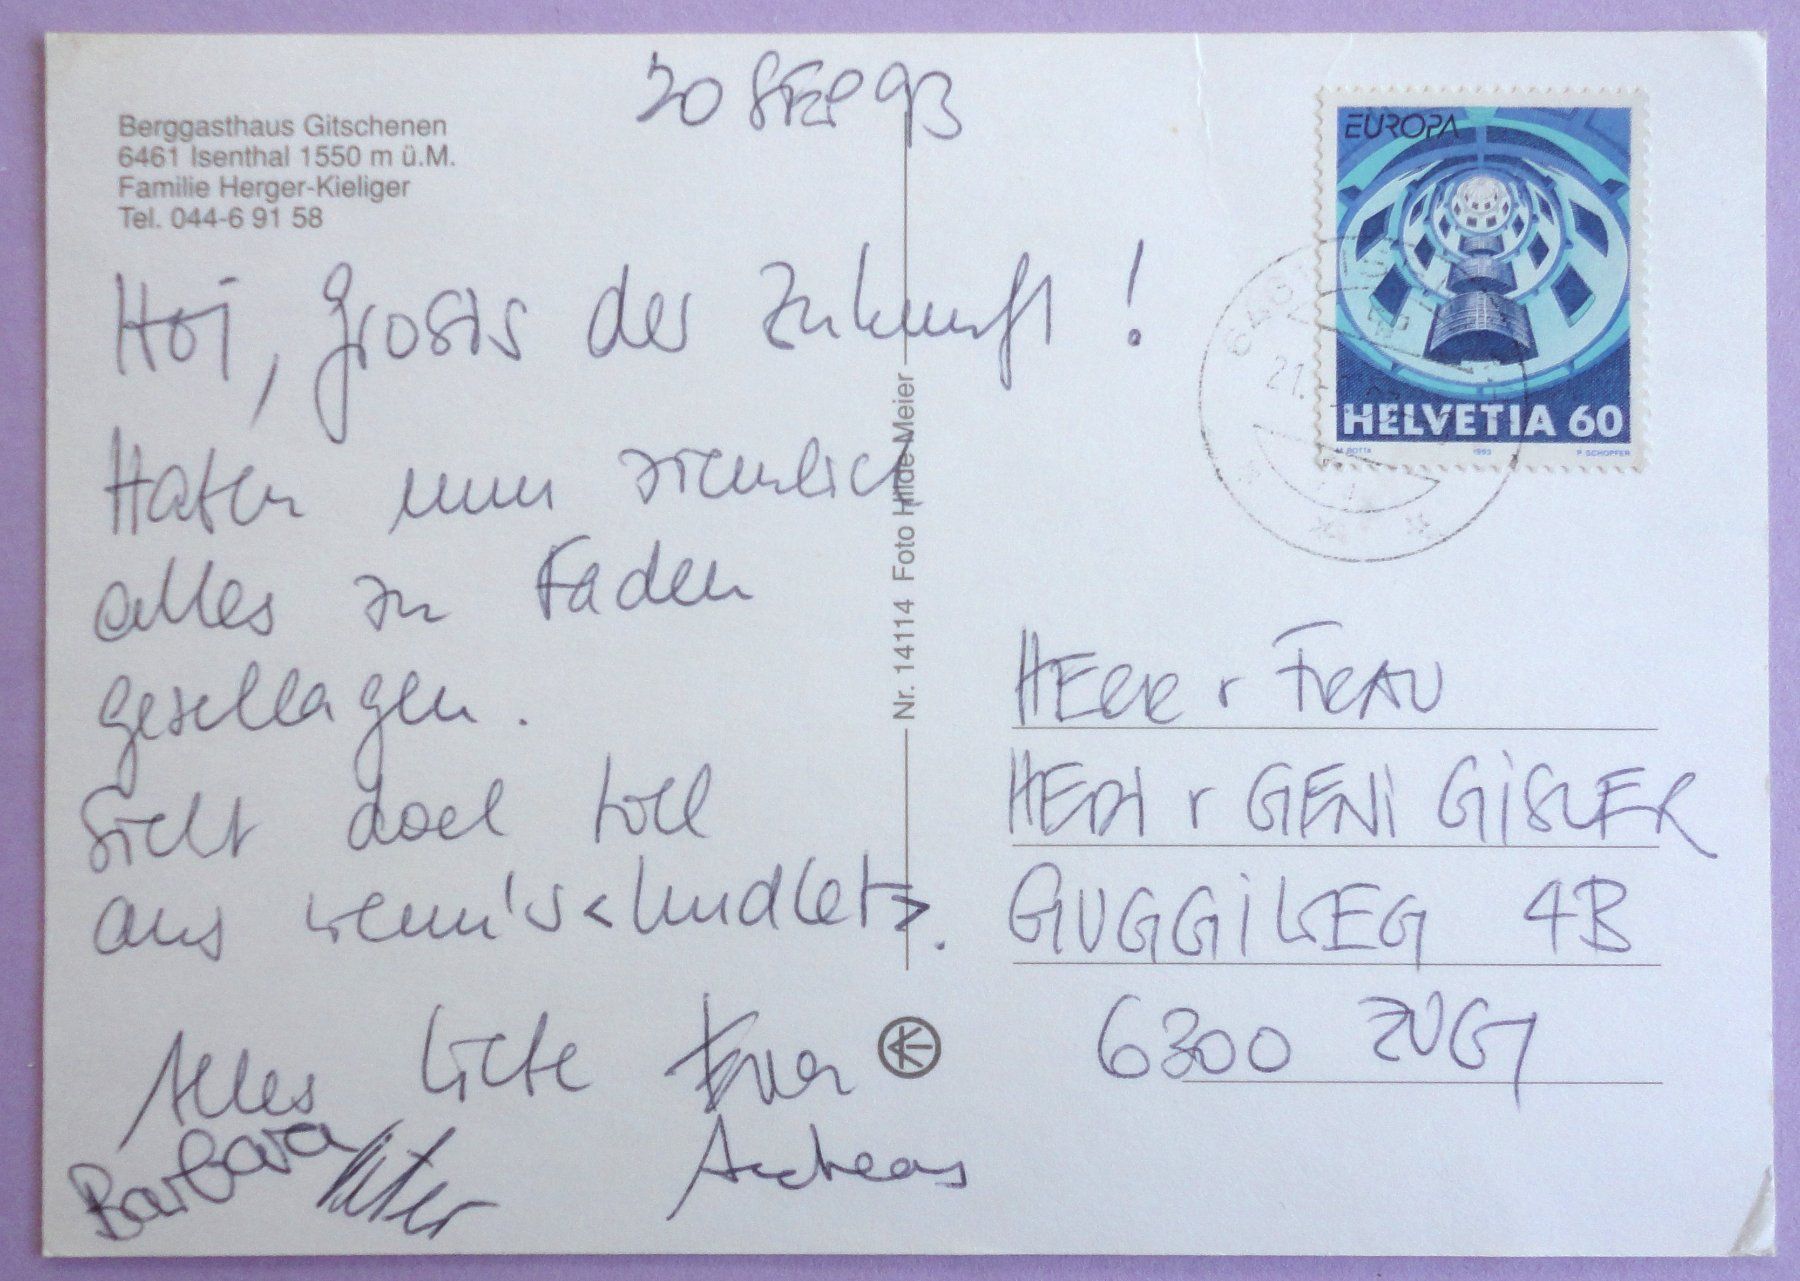 20 SEP 93
Berggasthaus Gitschenen
6461 Isenthal 1550 m ü.M.
Familie Herger-Kieliger
Tel. 044-6 91 58
Hoi, Grosis der Zukunft!
Haben nun ziemlich
alles zu Faden
geschlagen.
Sieht doch toll
aus wenn's <hudlet>.
Alles Liebe Euer
Andreas
Barbara Peter
Nr. 14114 Foto Hilde Meier
EUROPA
HELVETIA 60
M. BOTTA 1993 P. SCHOPFER
21.
HERR + FRAU
HEDI + GENI GISLER
GUGGILEG 4B
6300 ZUG